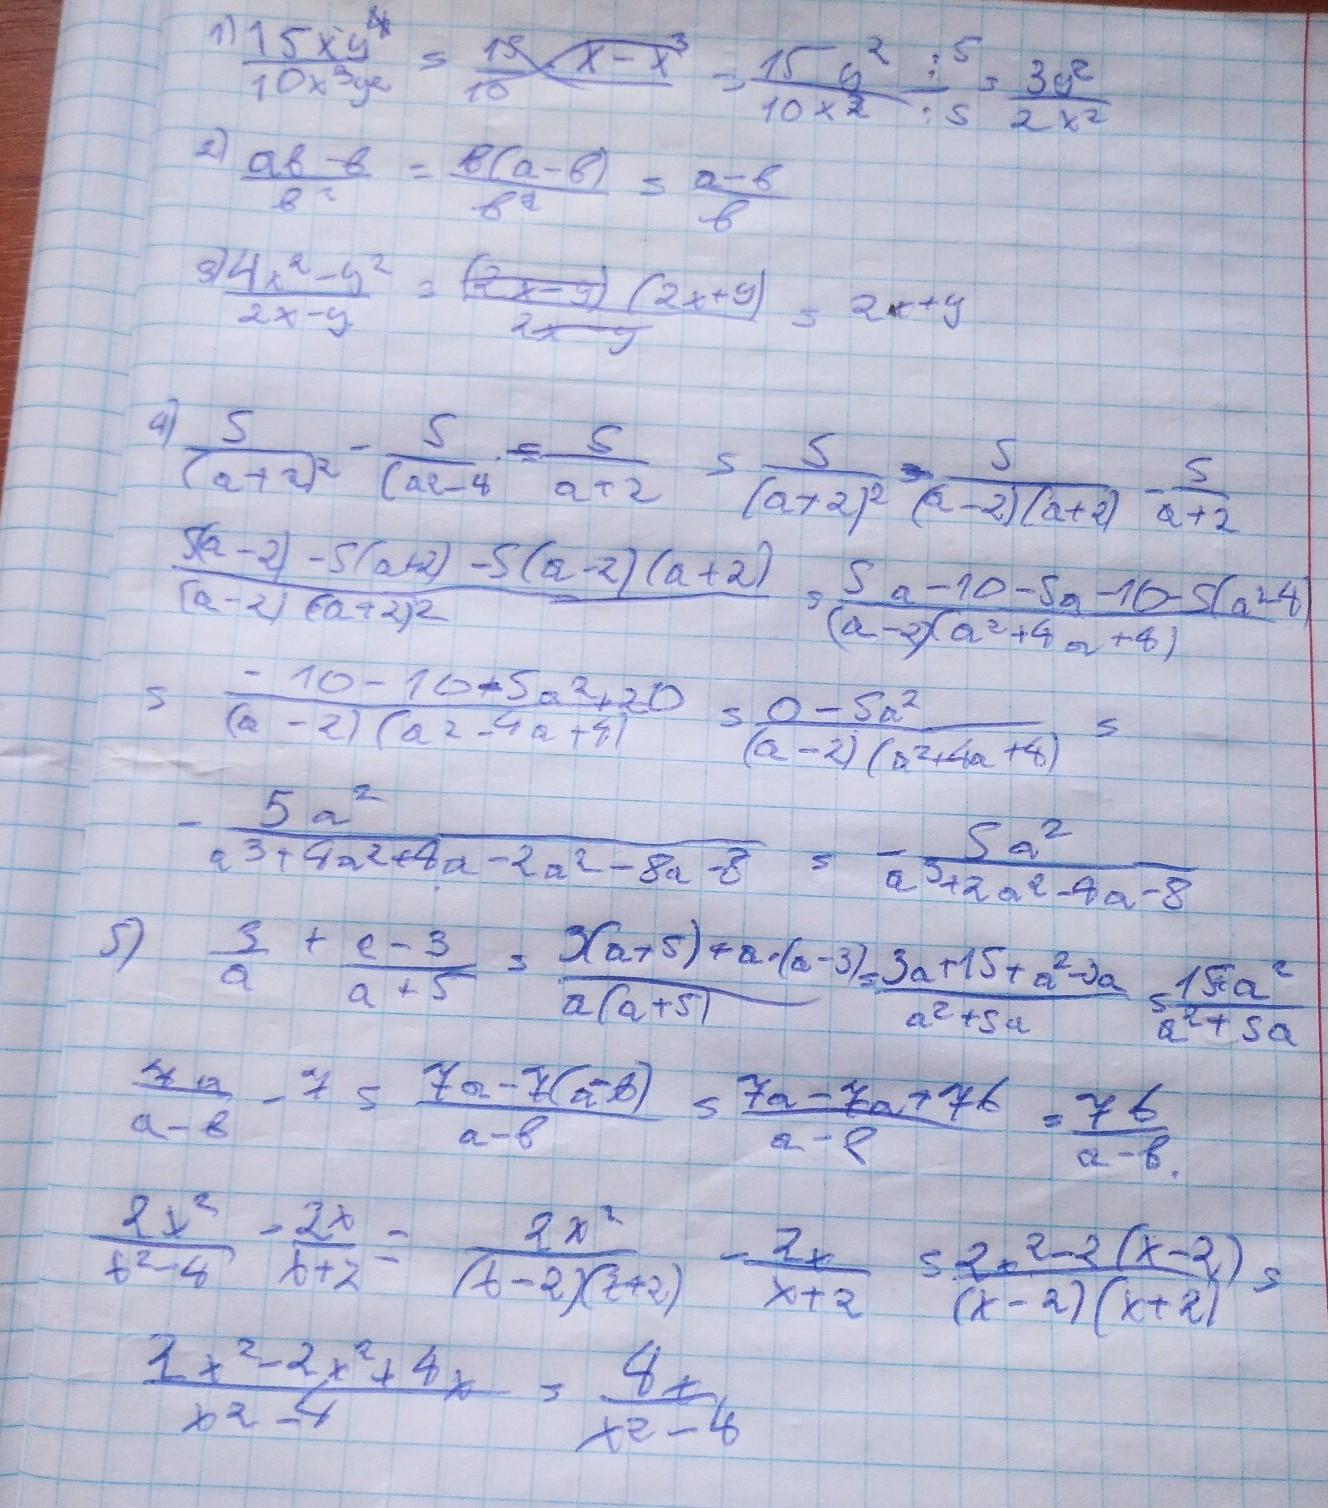 1) 15xy⁴/10x³y² = 15/10 x-x³ = 15y²/10x² :5/:5 = 3y²/2x²
2) ab-b/b² = b(a-b)/b² = a-b/b
3) 4x²-y²/2x-y = (2x-y)(2x+y)/2x-y = 2x+y
4) 5/(a+2)² - 5/(a²-4 - 5/a+2 = 5/(a+2)² - 5/(a-2)(a+2) - 5/a+2
5(a-2)-5(a+2)-5(a-2)(a+2)/(a-2)(a+2)² = 5a-10-5a-10-5(a²-4)/(a-2)(a²+4a+4)
= -10-10-5a²+20/(a-2)(a²-4a+4) = 0-5a²/(a-2)(a²+4a+4) =
- 5a²/a³+4a²+4a-2a²-8a-8 = - 5a²/a³+2a²-4a-8
5) 3/a + a-3/a+5 = 3(a+5)+a·(a-3)/a(a+5) = 3a+15+a²-3a/a²+5a = 15+a²/a²+5a
7a/a-b - 7 = 7a-7(a-b)/a-b = 7a-7a+7b/a-b = 7b/a-b.
2x²/x²-4 - 2x/x+2 = 2x²/(x-2)(x+2) - 2x/x+2 = 2x²-2(x-2)/(x-2)(x+2) =
2x²-2x²+4x/x²-4 = 4x/x²-4